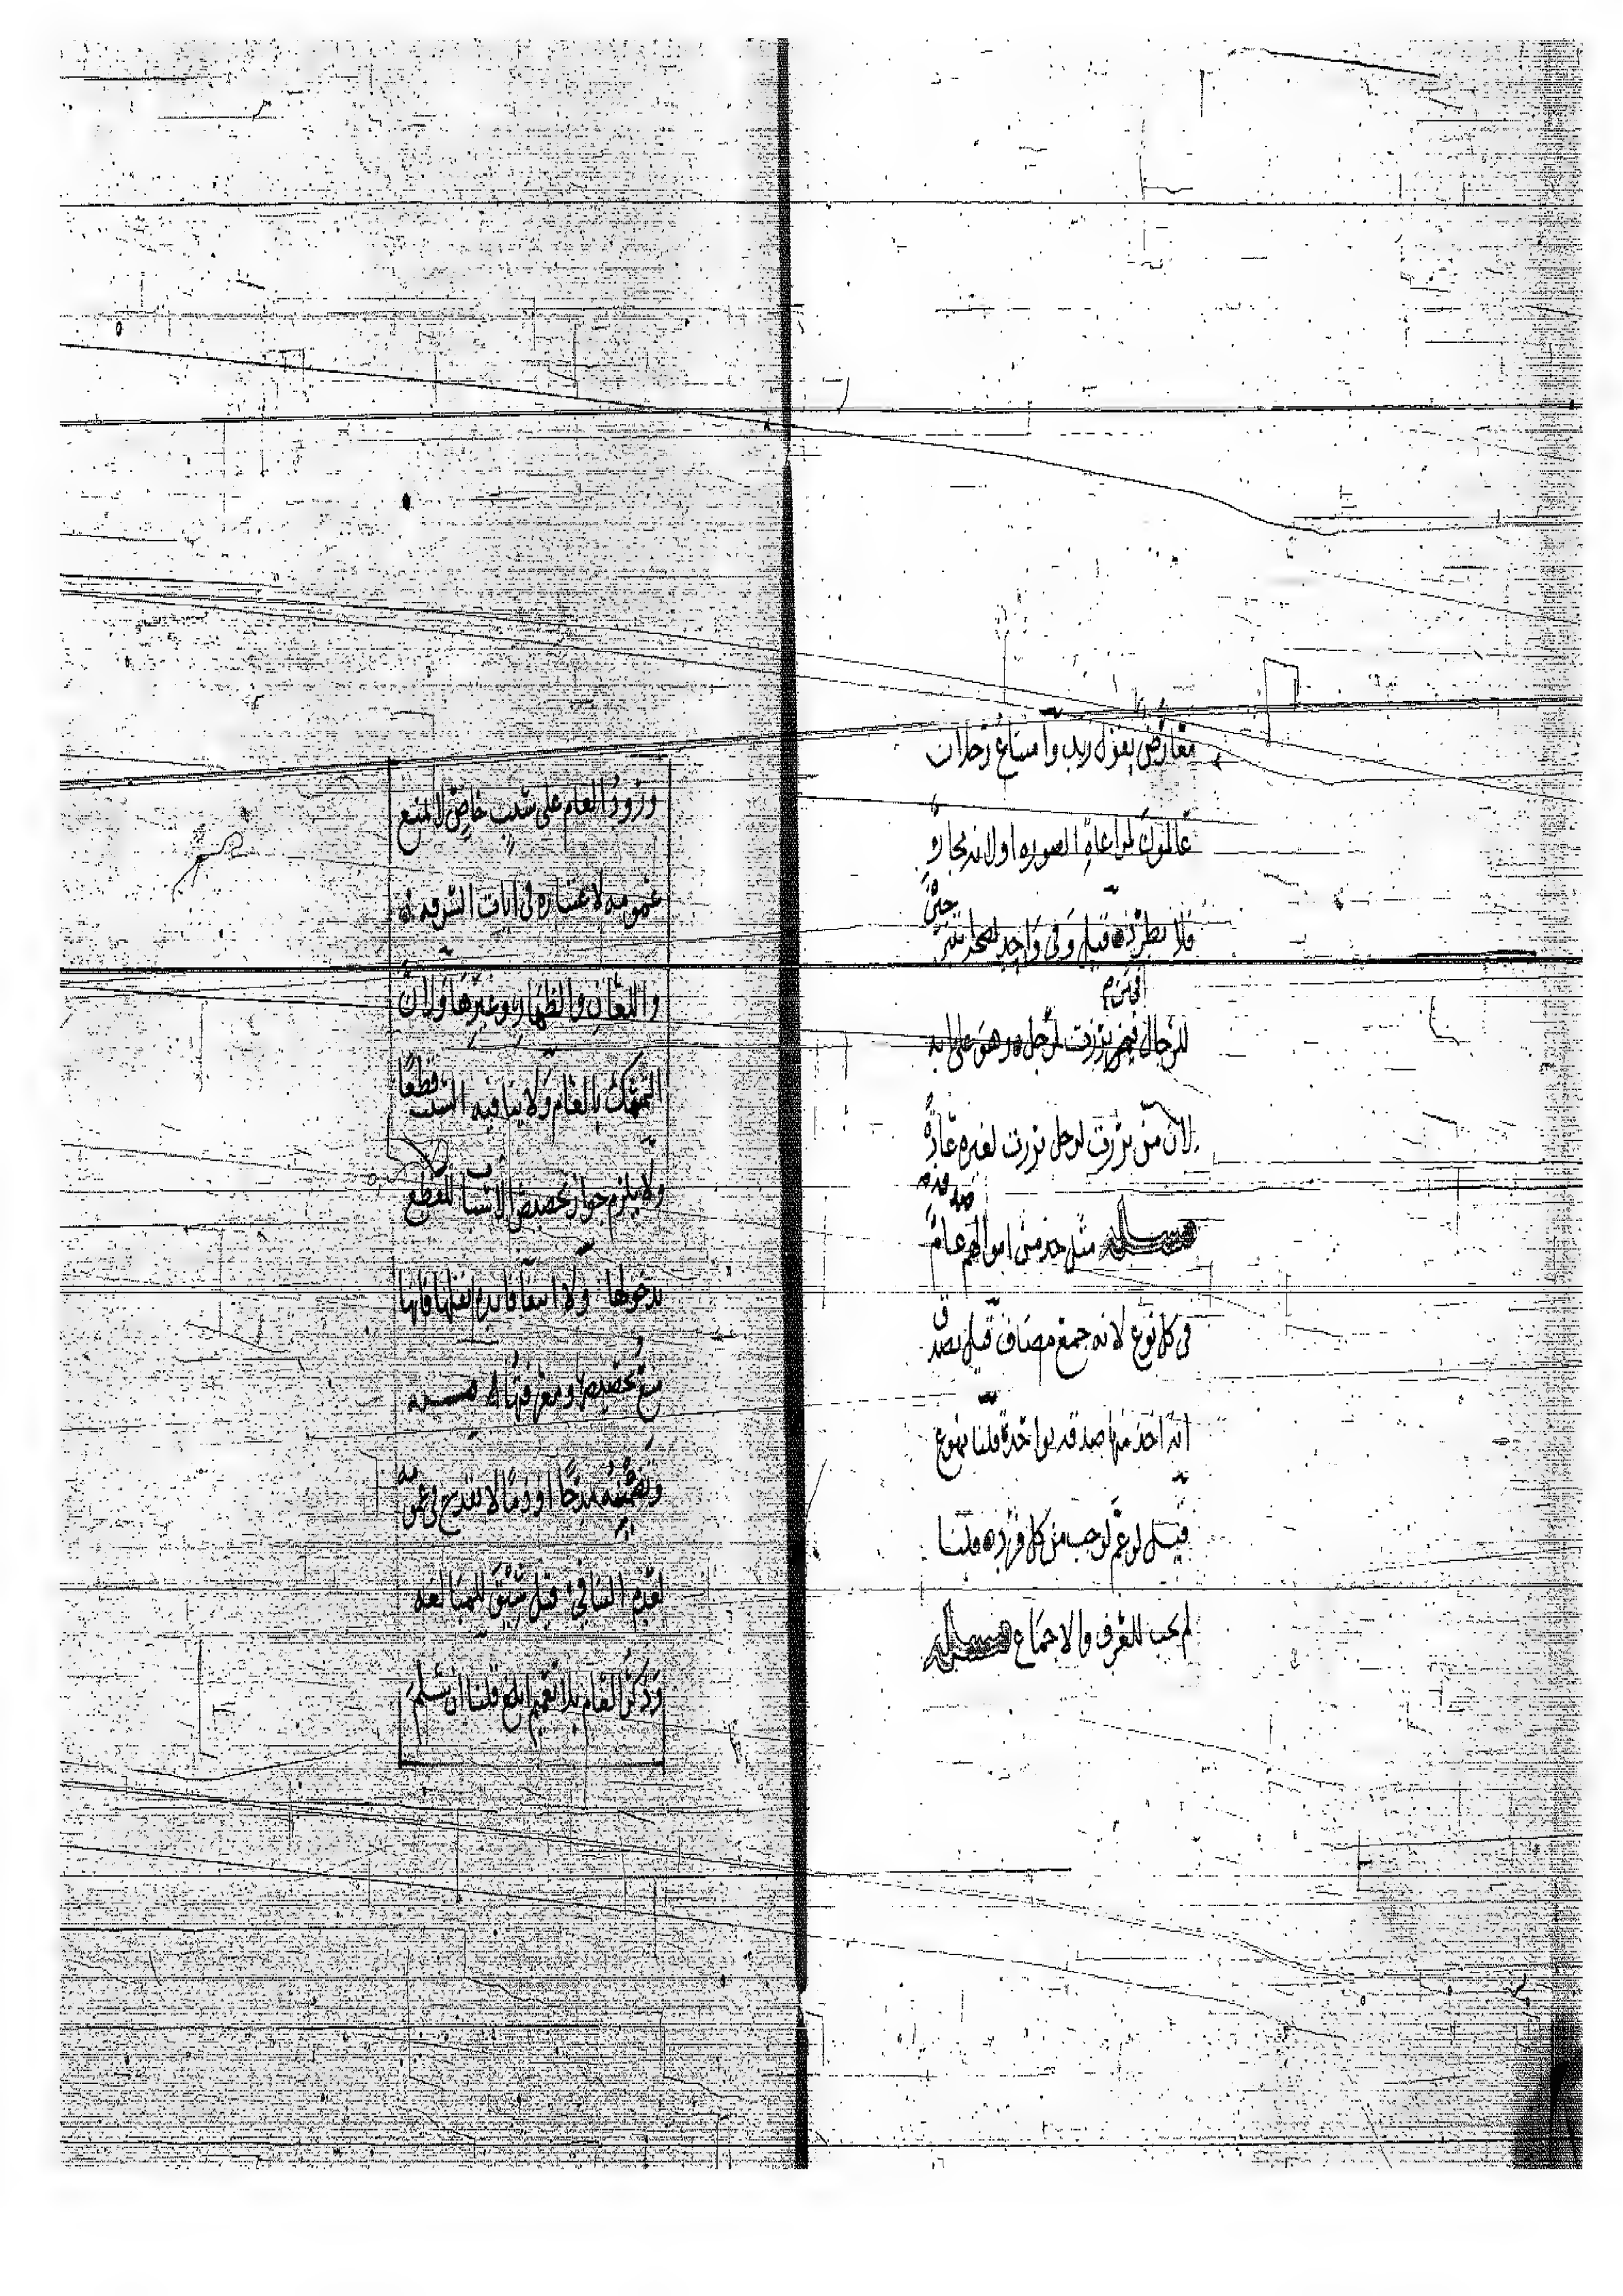 معارض بقول زيد وامتناع رجلان
عالموك لمراعاة الصوره اولانه مجاز
فلا يطرد ه قيل وفي واحد
للرجال فيهم مررت لرجل ه وهو على
لان من مررت لرجل مررت لغيره عادة
مسأله مثل خذ من اموالهم صدقة عام
في كل نوع لانه جمع مضاف قيل يصدق
انه اخذ منها صدقه بواحدة قلنا نوع
قيل لو عم لوجب من كل فرد ه قلنا
لم يجب للعرف والاجماع مسأله
ورود العام على سبب خاص لا يمنع
عمومه لاعتباره في ايات السرقه
واللعان والظهار وغيرها ولان
التمسك بالعام ولا ينافيه السبب قطعا
ولا يلزم جواز تخصيص الاسباب للقطع
بدخولها ولا انتفا فايدة نقلها فانها
منع تخصيصها ومعرفتها ه مسأله
وتضمنه مدحا او ذما لا يقدح في عمومه
لعدم التنافي قيل سيق للمبالغه
وذكر العام بلا تعميم ابلغ قلنا ان سلم